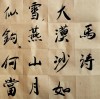 馬詩
大漠沙如
雪燕山月
似鉤何當